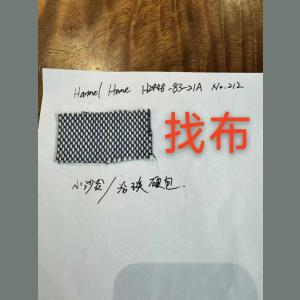 Hamel Home HDP48-83-21A No.212
找布
小沙发/沿张硬包.